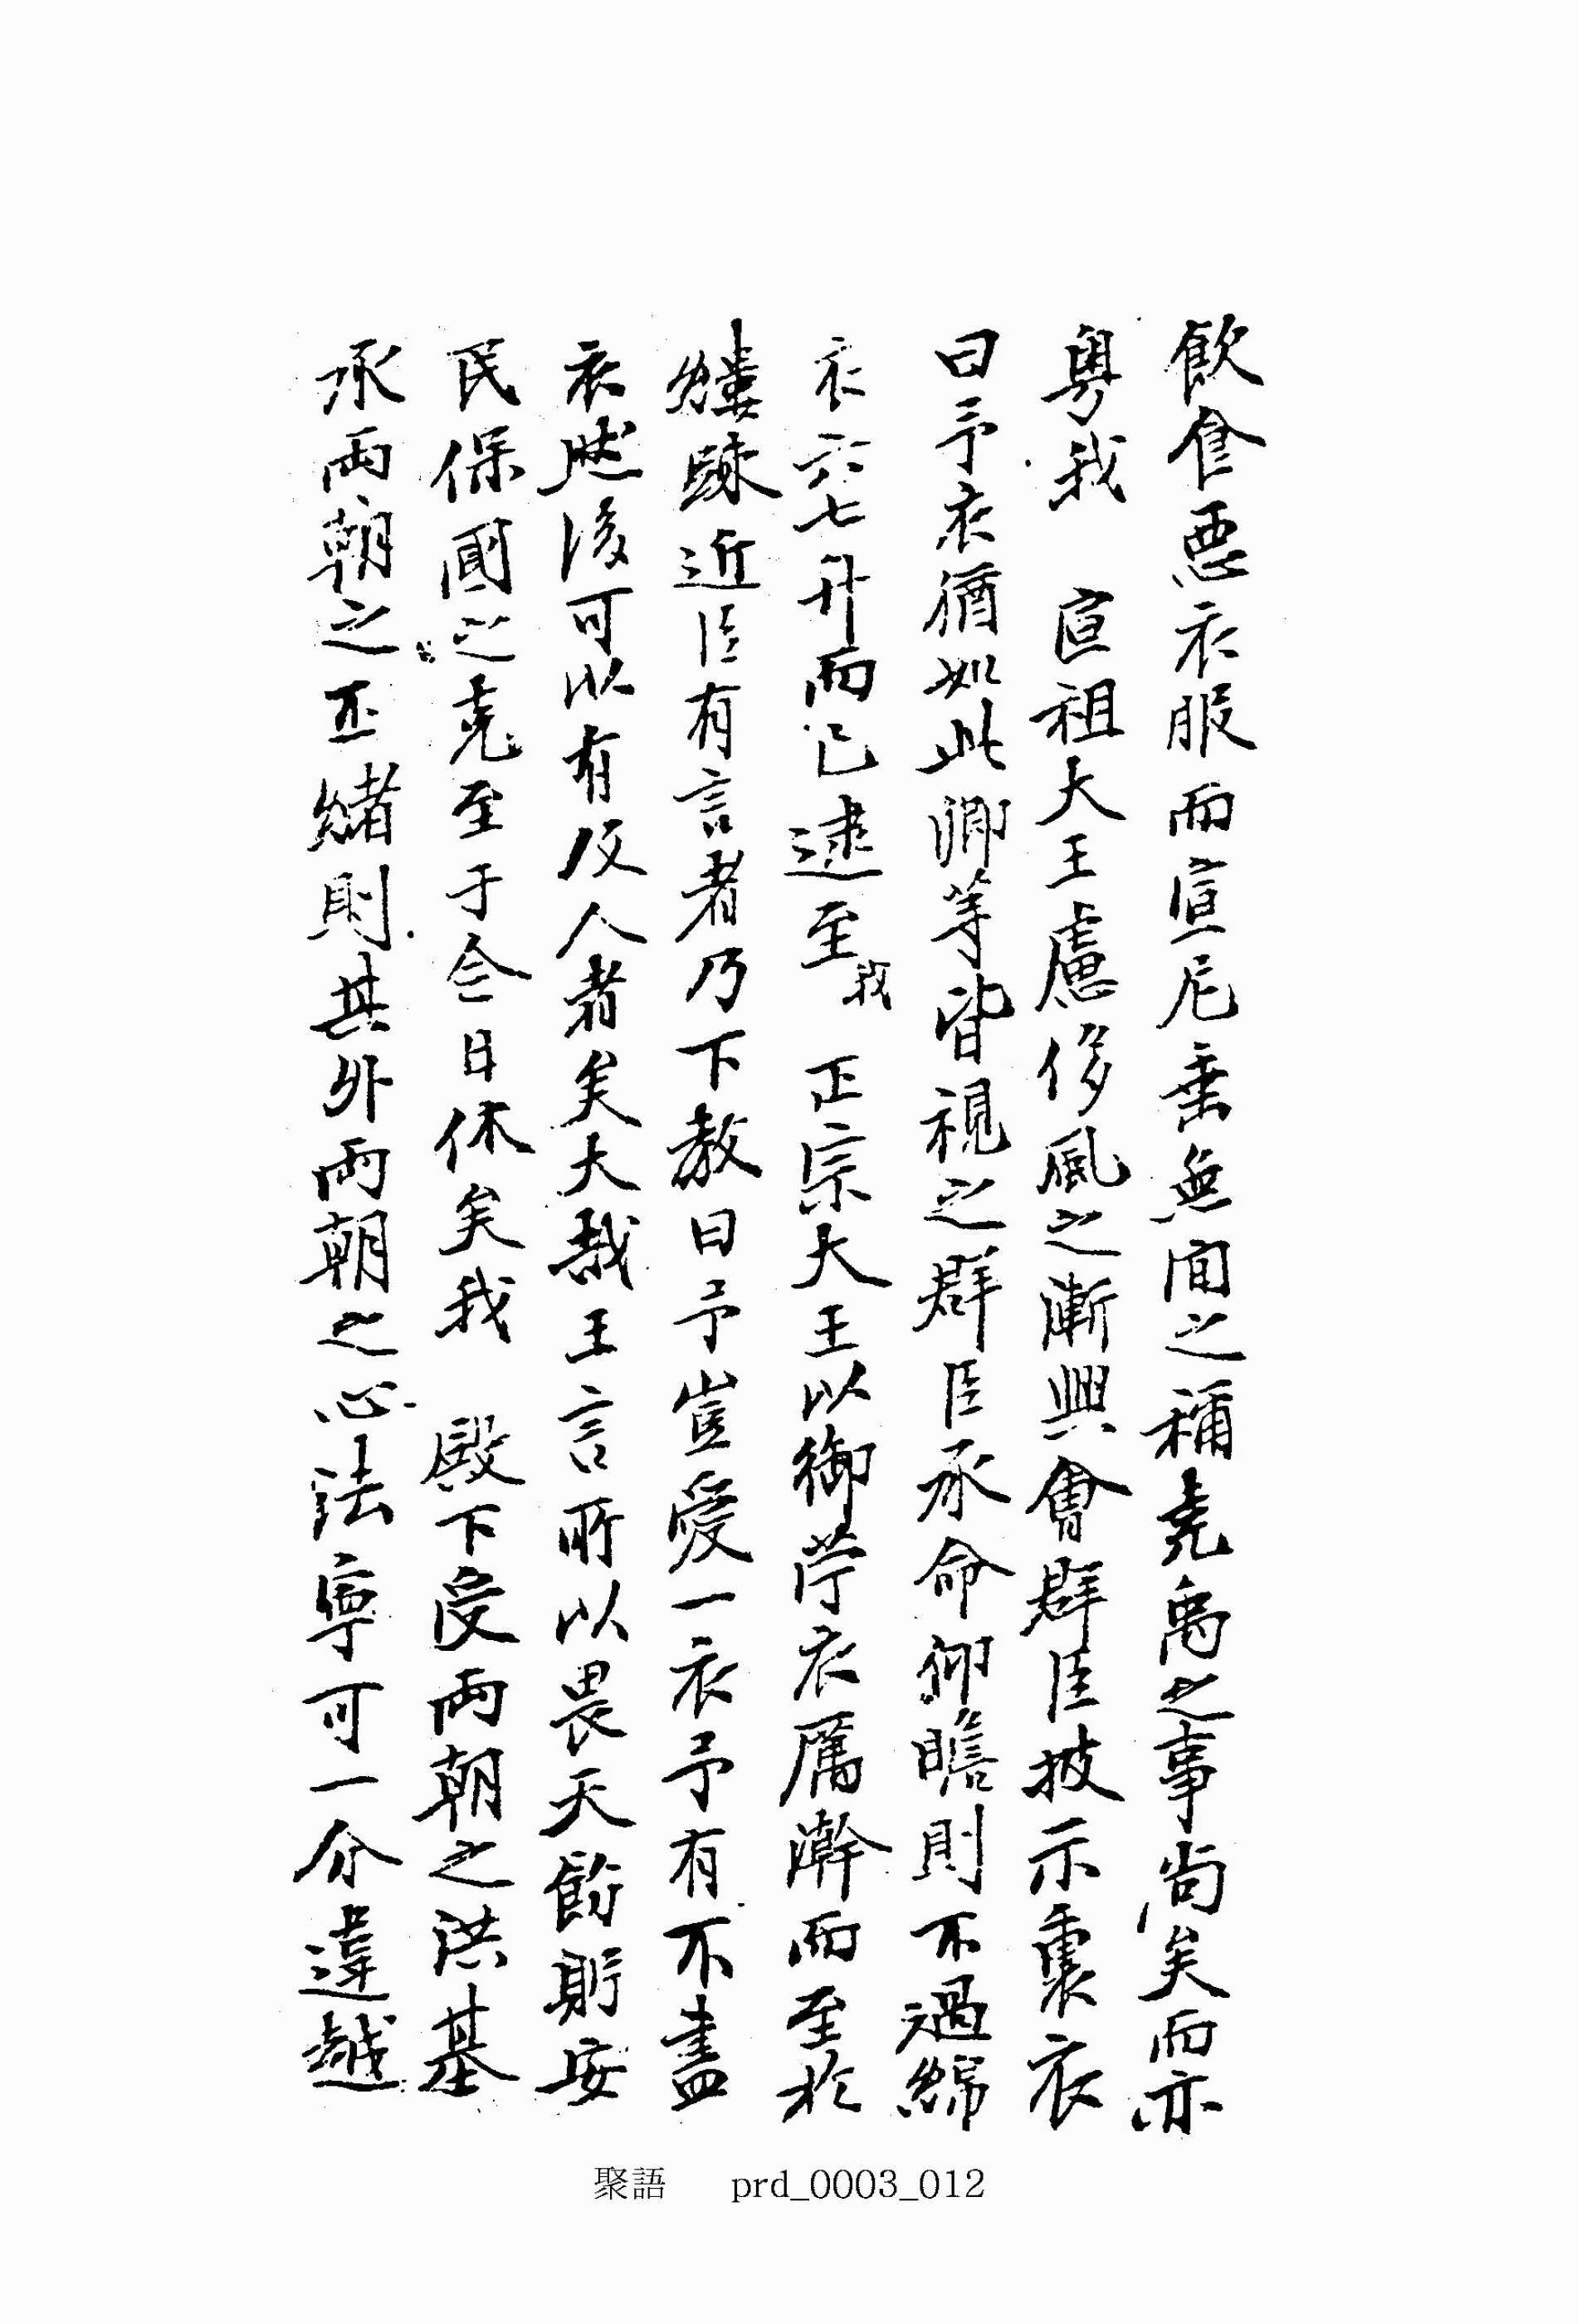 飮食惡衣服而宣尼垂無間之稱堯禹之事尙矣而亦
粤我 宣祖大王慮侈風之漸興會群臣披示裏衣
曰予衣猶如此卿等皆視之群臣承命仰瞻則不過綿
衣六七升而已逮至我 正宗大王以御苧衣屢澣而至於
縷踈近臣有言者乃下敎曰予豈愛一衣予有不盡
衣然後可以有及人者矣大哉王言所以畏天飭躬安
民保國之克至于今日休矣我 殿下受兩朝之洪基
承兩朝之丕緖則其外兩朝之心法寧可一分違越
聚語 prd_0003_012